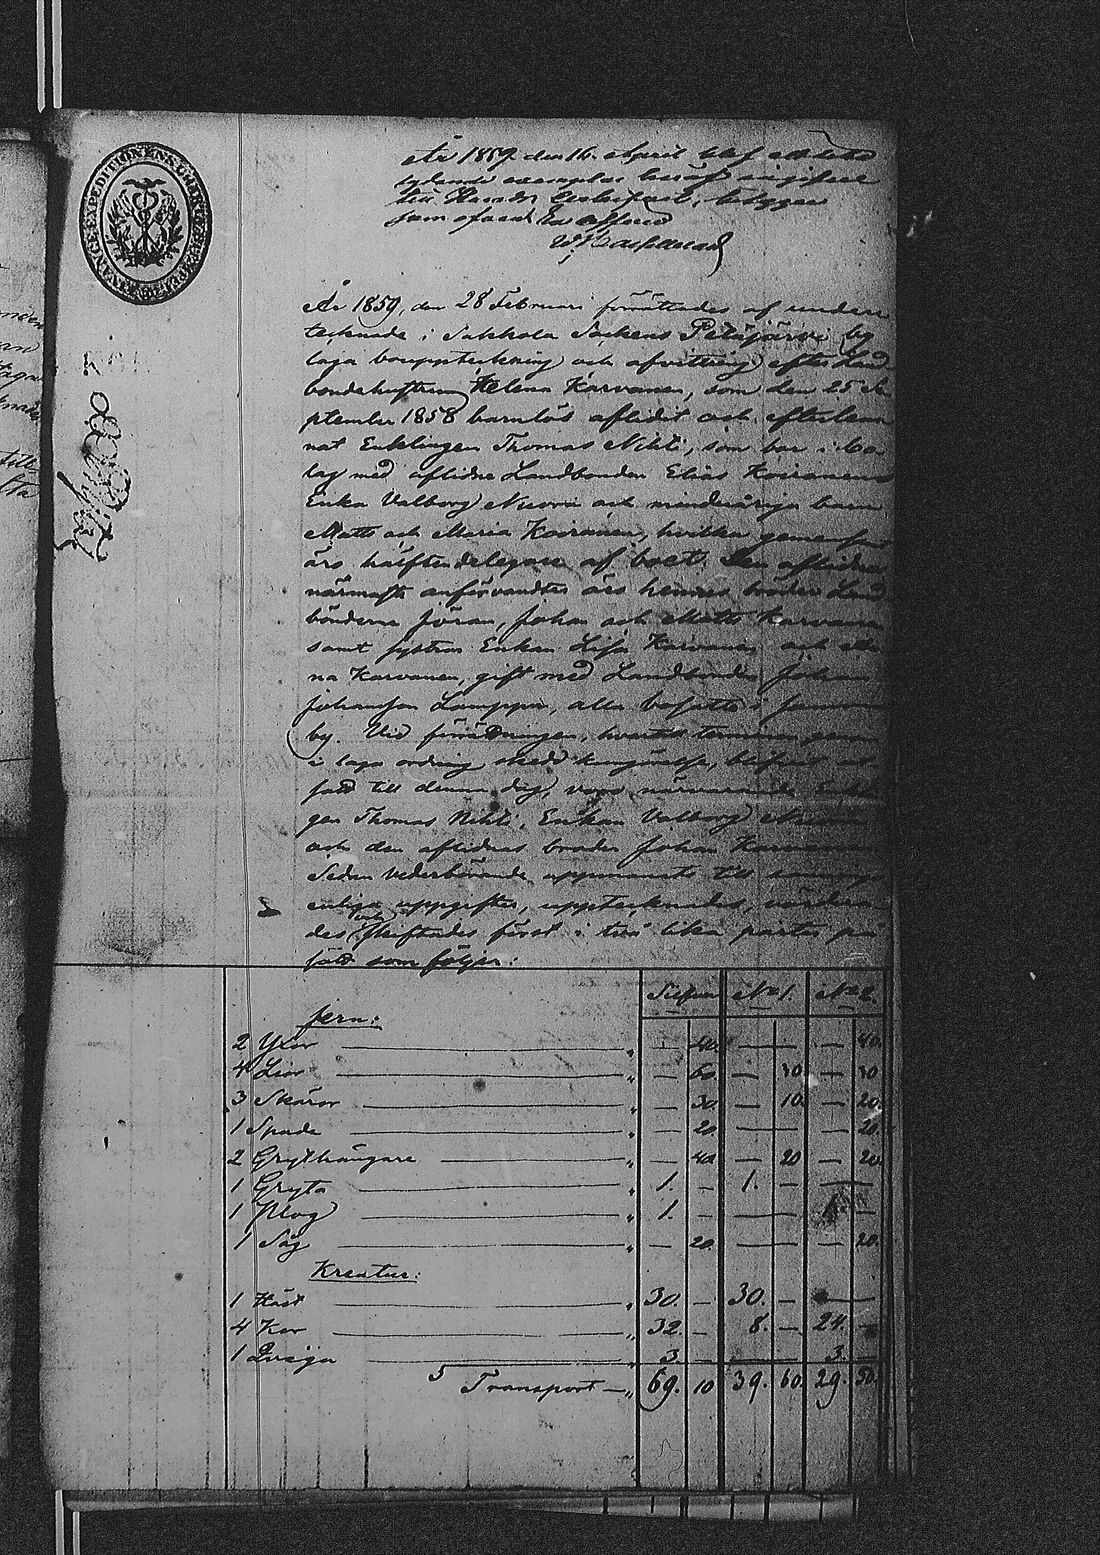 År 1859 den 16 April blef ett dylikt
exemplar häraf ingifvet
till Härads
W. Hasselblad
År 1859, den 28 Februari förrättades af under
tecknade i Sakkola Sockens Petäjärvi by
laga bouppteckning och afvittring efter Land
bondehustrun Helena Karvanen, som den 25 Se
ptember 1858 barnlös aflidit och efterlem
nat Enklingen Thomas Nikti, som har i bo
lag med aflidne Landbonden Elias Koiranens
Enka Valborg Nuora och minderåriga barn
Matts och Maria Koiranen, hvilka gemensamt
äro hälftendelegare af boet. Den aflidnas
närmaste anförvandter äro hennes bröder Land
bönderne Jöran, Johan och Matts Karvanen
samt systrar Enkan Lisa Karvanen och An
na Karvanen, gift med Landbonden Johan
Johansson Lamppu, alla bosatte i samma
by. Vid förrättningen, hvartill terminen genom
i laga ordning skedd kungörelse, blifvit ut
satt till denna dag, voro närvarande Enklin
gen Thomas Nikti, Enkan Valborg Nuora
och den aflidnas broder Johan Karvanen
Sedan vederbörande uppmanats till sannings
enliga uppgifter, upptecknades, värdera
des och skiftades först i två lika parter på
sätt som följer:
Silfver No 1. No 2.
Jern:
2 Yxor " — 40. — — 40.
4 Liar " — 60. — 30. — 30
3 Skäror " — 30. — 10. — 20.
1 Spade " — 20. — — 20.
2 Grythängare " — 40 — 20 — 20.
1 Gryta " 1. — 1. — —
1 Plog " 1. — — 1. —
1 Såg " — 20. — — 20.
Kreatur:
1 Häst " 30. — 30. — —
4 Kor " 32. — 8. — 24. —
1 Qviga " 3. — — 3. —
Transport — " 69. 10 39. 60. 29. 50.